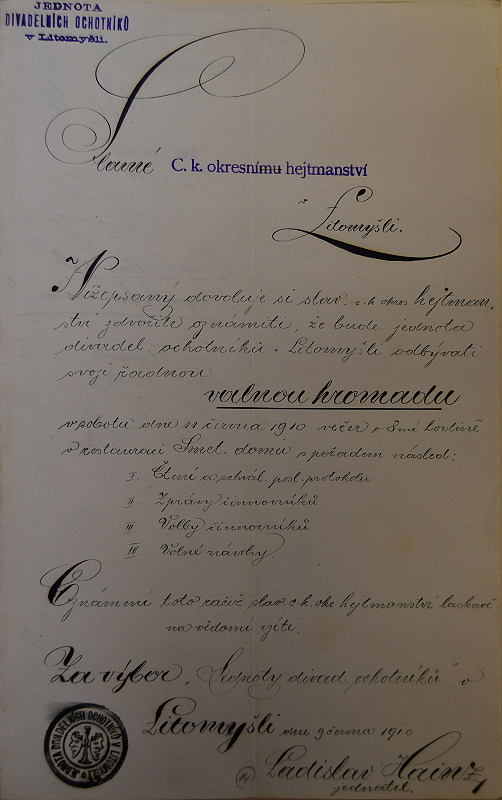 JEDNOTA
DIVADELNÍCH OCHOTNÍKŮ
v Litomyšli.
Slavné C. k. okresnímu hejtmanství
v
Litomyšli.
Nížepsaný dovoluje si slav. c. k. okres. hejtman-
ství zdvořile oznámiti, že bude jednota
divadel. ochotníků v Litomyšli odbývati
svoji řádnou
valnou hromadu
v sobotu dne 11 června 1910 večer o 8mé hodině
v restauraci Smet. domu s pořadem násled:
I. Čtení a schvál. posl. protokolu
II. Zprávy činovníků
III Volby činovníků
IV. Volné návrhy.
Oznámení toto račiž slav. c. k. okr. hejtmanství laskavě
na vědomí vzíti.
Za výbor „Jednoty divad. ochotníků" v
Litomyšli, dne 9 června 1910
Ladislav Hainz,
jednatel.
JEDNOTA DIVADELNÍCH OCHOTNÍKŮ V LITOMYŠLI